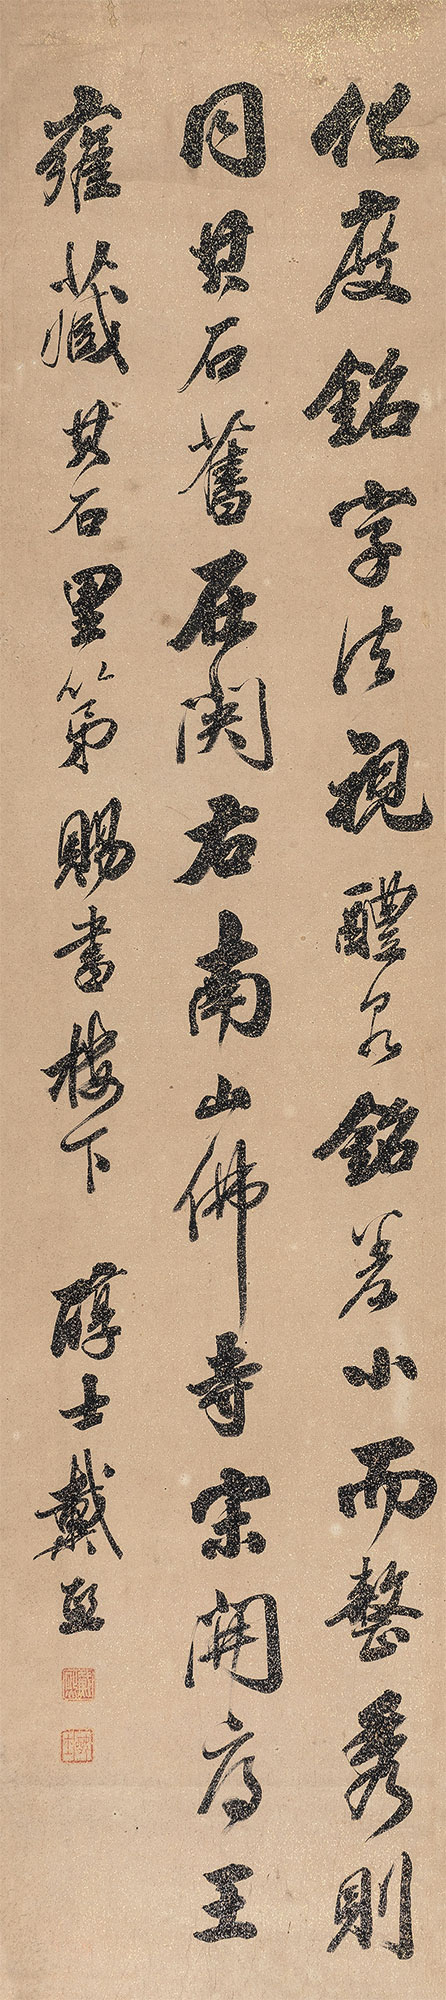 化度銘字法視醴泉銘差小而整秀則
同其石舊在関右南山佛寺宋開府王
雍藏其石里第賜書樓下 醇士戴熙